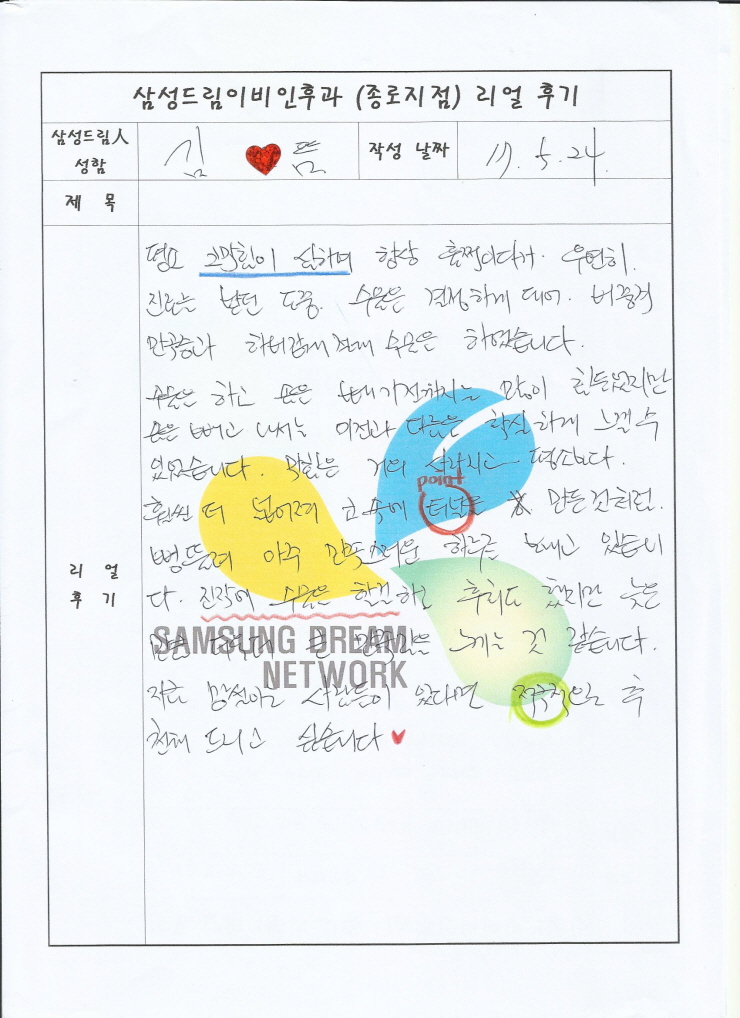 삼성드림이비인후과 (종로지점) 리얼 후기
삼성드림人
성함
김 ❤ 뜸
작성 날짜
17. 5. 24.
제 목
리 얼
후 기
평소 코막힘이 심하여 항상 훌쩍이다가 우연히
진료를 받던 도중 수술을 결정하게 되어. 비중격
만곡증과 하비갑개절제 수술을 하였습니다.
수술을 하고 솜을 빼기전까지는 많이 힘들었지만
솜을 빼고 나서는 이전과 다름을 확실하게 느낄 수
있었습니다. 막힘은 거의 사라지고 평소보다.
훨씬 더 넓어져 코 속에 터널을 만든것처럼.
point
뻥뚫려 아주 만족스러운 하루를 보내고 있습니
다. 진작에 수술을 할걸하고 후회도 했지만 늦은
만큼 더 만족감을 느끼는 것 같습니다.
SAMSUNG DREAM
NETWORK
저는 망설이는 사람들이 있다면 적극적으로 추
천해 드리고 싶습니다 ♥